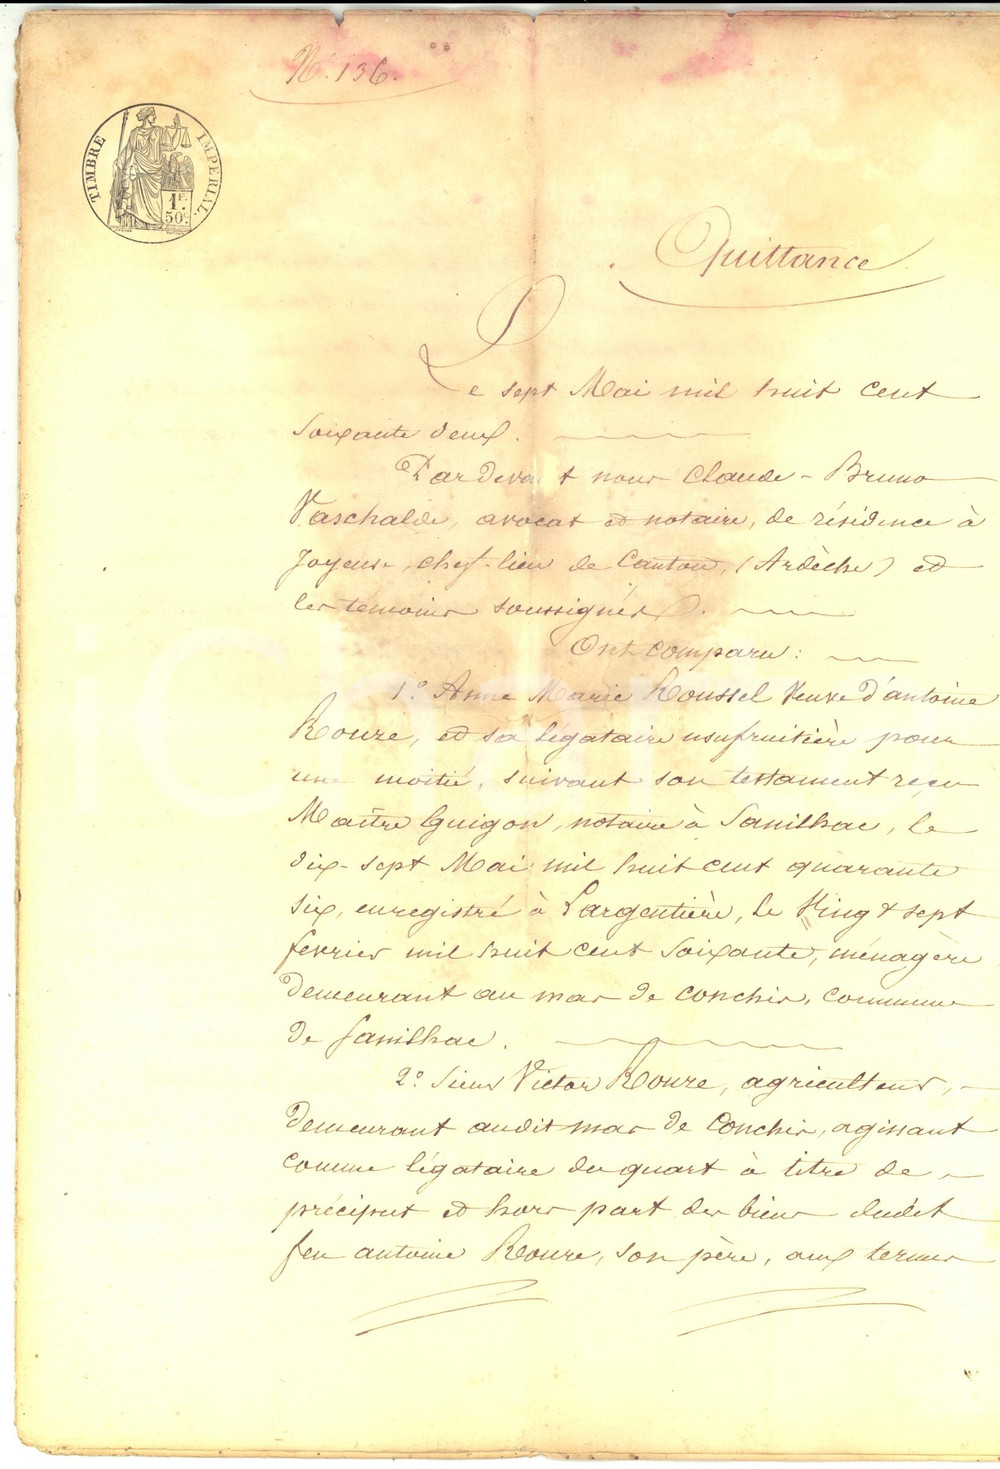 N. 136.
TIMBRE IMPERIAL.
1F.
50C.
Quittance
Le sept Mai mil huit cent
soixante deux.
Par devant nous Claude-Bruno
Vaschalde, avocat et notaire, de résidence à
Joyeuse, chef-lieu de Canton, (Ardèche) et
les témoins soussignés.
Ont comparu :
1° Anne Marie Roussel Veuve d'antoine
Roure, et sa légataire usufruitière pour
une moitié, suivant son testament reçu
Maître Guigon, notaire à Sanilhac, le
dix-sept Mai mil huit cent quarante
six, enregistré à Largentière, le Vingt sept
février mil huit cent soixante, ménagère
demeurant au mas de conchis, commune
de Sanilhac.
2° Sieur Victor Roure, agriculteur,
demeurant audit mas de Conchis, agissant
comme légataire du quart à titre de
préciput et hors part des biens dudit
feu antoine Roure, son père, aux termes